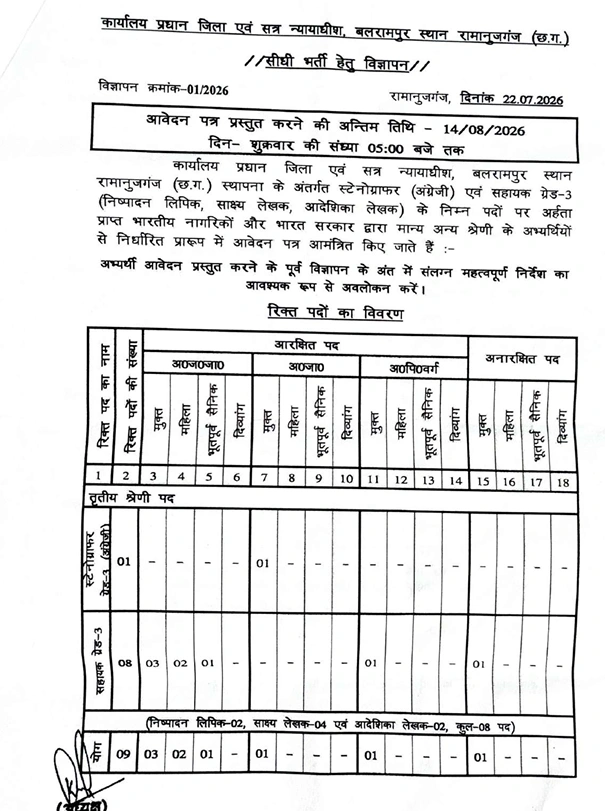 कार्यालय प्रधान जिला एवं सत्र न्यायाधीश, बलरामपुर स्थान रामानुजगंज (छ.ग.)
//सीधी भर्ती हेतु विज्ञापन//
विज्ञापन क्रमांक-01/2026
रामानुजगंज, दिनांक 22.07.2026
आवेदन पत्र प्रस्तुत करने की अन्तिम तिथि - 14/08/2026
दिन- शुक्रवार की संध्या 05:00 बजे तक
कार्यालय प्रधान जिला एवं सत्र न्यायाधीश, बलरामपुर स्थान
रामानुजगंज (छ.ग.) स्थापना के अंतर्गत स्टेनोग्राफर (अंग्रेजी) एवं सहायक ग्रेड-3
(निष्पादन लिपिक, साक्ष्य लेखक, आदेशिका लेखक) के निम्न पदों पर अर्हता
प्राप्त भारतीय नागरिकों और भारत सरकार द्वारा मान्य अन्य श्रेणी के अभ्यर्थियों
से निर्धारित प्रारूप में आवेदन पत्र आमंत्रित किए जाते हैं :-
अभ्यर्थी आवेदन प्रस्तुत करने के पूर्व विज्ञापन के अंत में संलग्न महत्वपूर्ण निर्देश का
आवश्यक रूप से अवलोकन करें।
रिक्त पदों का विवरण
रिक्त पद का नाम रिक्त पदों की संख्या आरक्षित पद अनारक्षित पद
अ0ज0जा0 अ0जा0 अ0पि0वर्ग
मुक्त महिला भूतपूर्व सैनिक दिव्यांग मुक्त महिला भूतपूर्व सैनिक दिव्यांग मुक्त महिला भूतपूर्व सैनिक दिव्यांग मुक्त महिला भूतपूर्व सैनिक दिव्यांग
1 2 3 4 5 6 7 8 9 10 11 12 13 14 15 16 17 18
तृतीय श्रेणी पद
स्टेनोग्राफर ग्रेड-3 (अंग्रेजी) 01 - - - - 01 - - - - - - - - - - -
सहायक ग्रेड-3 08 03 02 01 - - - - - 01 - - - 01 - - -
(निष्पादन लिपिक-02, साक्ष्य लेखक-04 एवं आदेशिका लेखक-02, कुल-08 पद)
योग 09 03 02 01 - 01 - - - 01 - - - 01 - - -
(अध्यक्ष)